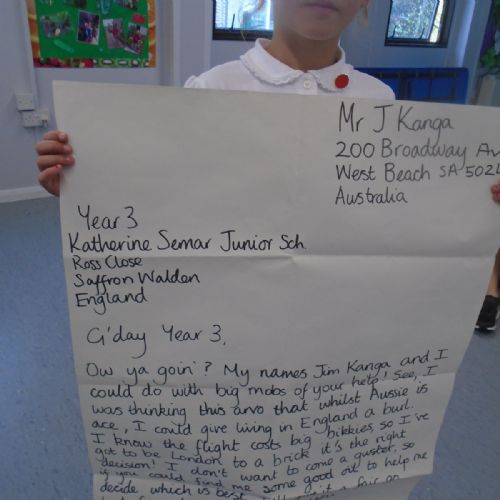 Mr J Kanga
200 Broadway Av
West Beach SA 5024
Australia
Year 3
Katherine Semar Junior Sch
Ross Close
Saffron Walden
England
G'day Year 3,
Ow ya goin'? My names Jim Kanga and I
could do with big mobs of your help! See, I
was thinking this arvo that whilst Aussie is
ace, I could give living in England a burl.
I know the flight costs big bikkies so I've
got to be London to a brick it's the right
decision! I don't want to come a guster, so
if you could find me some good oil to help me
decide which is best